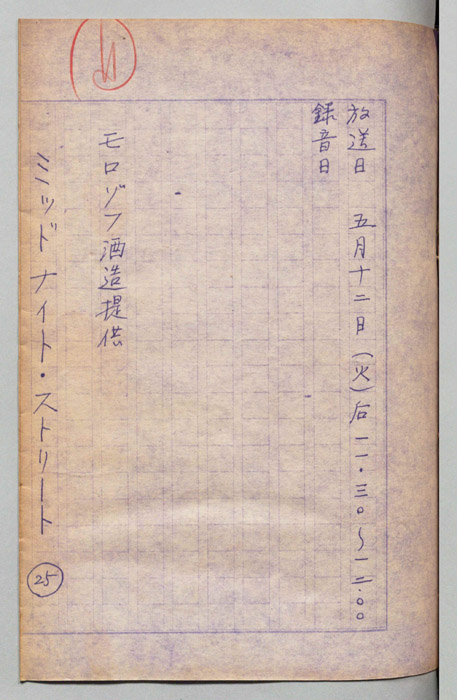 放送日　五月十二日（火）后一一・三〇～一二・〇〇
録音日
モロゾフ酒造提供
ミッドナイト・ストリート ㉕